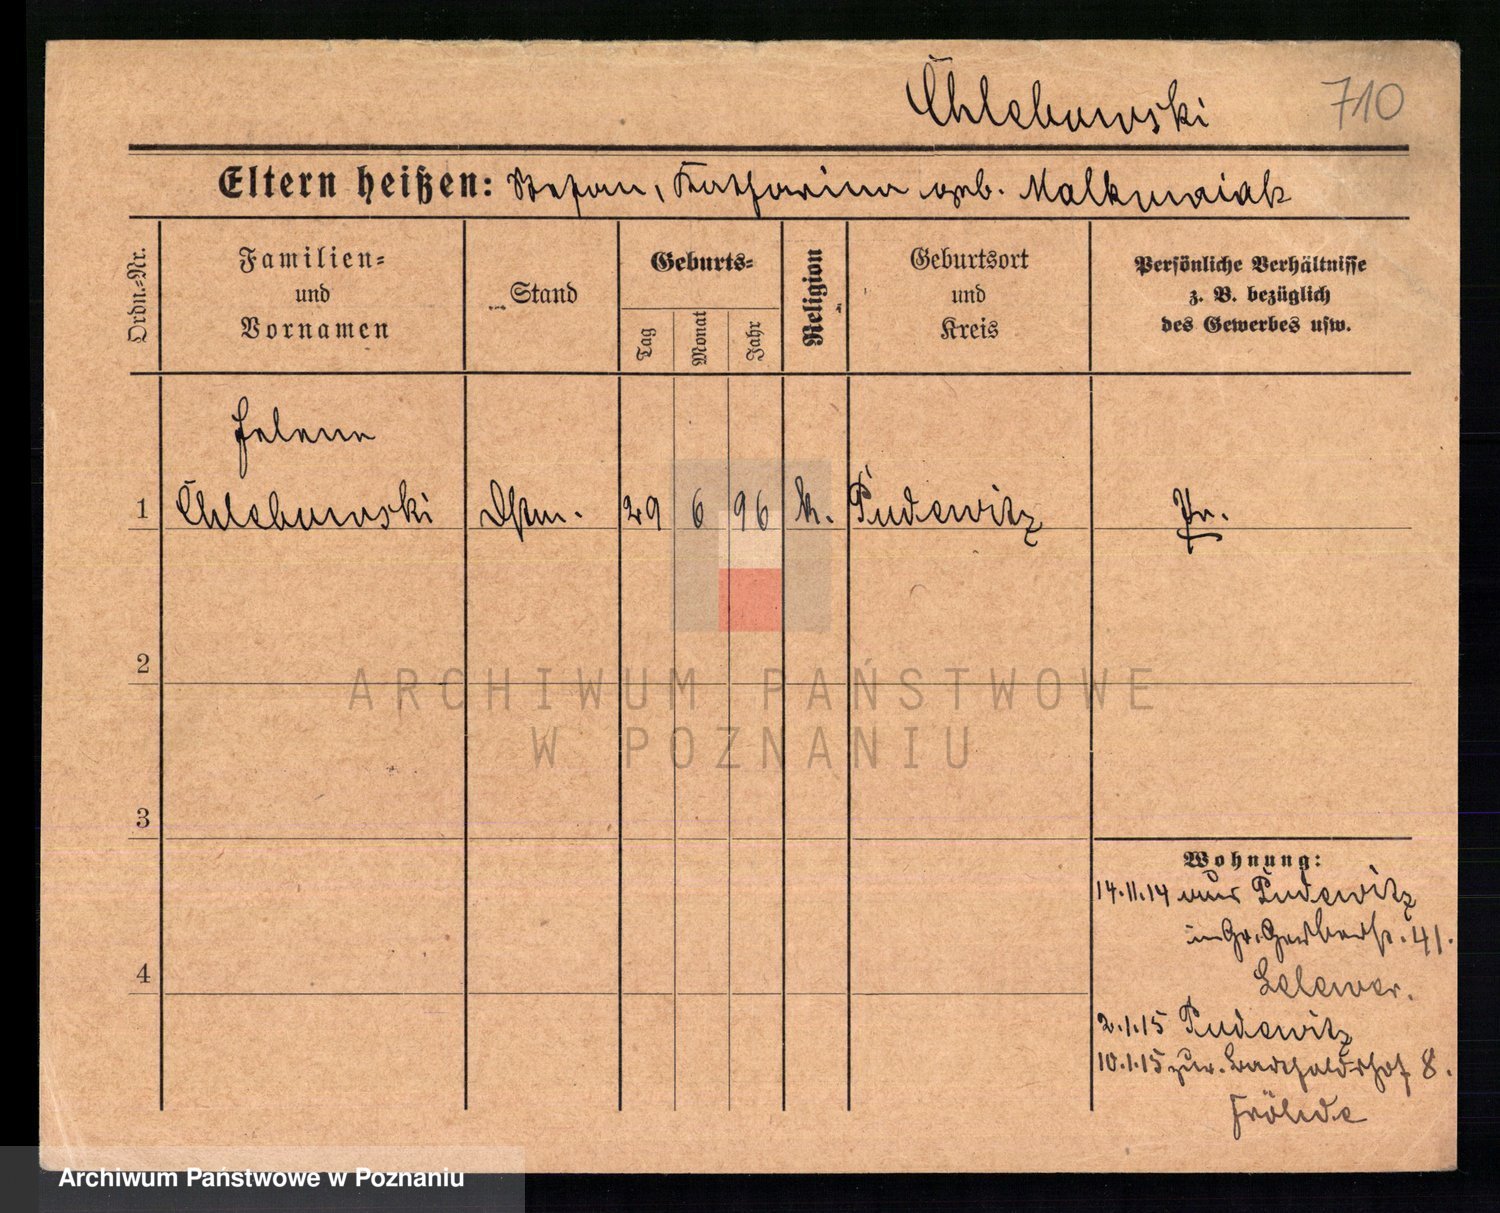 Chlebowski 710
Eltern heißen: Stefan, Katharina geb. Malkowiak
Ordn.-Nr.
Familien-
und
Vornamen
Stand
Geburts-
Tag
Monat
Jahr
Religion
Geburtsort
und
Kreis
Persönliche Verhältnisse
z. B. bezüglich
des Gewerbes usw.
Helene
1 Chlebowski Dstm. 29 6 96 k. Pudewitz Pr.
2
3
4
Wohnung:
14.11.14 aus Pudewitz
in Gr. Gerberst. 41.
Lelewer.
2.1.15 Pudewitz
10.1.15 zur. Bartholdshof 8.
Fröhde
ARCHIWUM PAŃSTWOWE
W POZNANIU
Archiwum Państwowe w Poznaniu